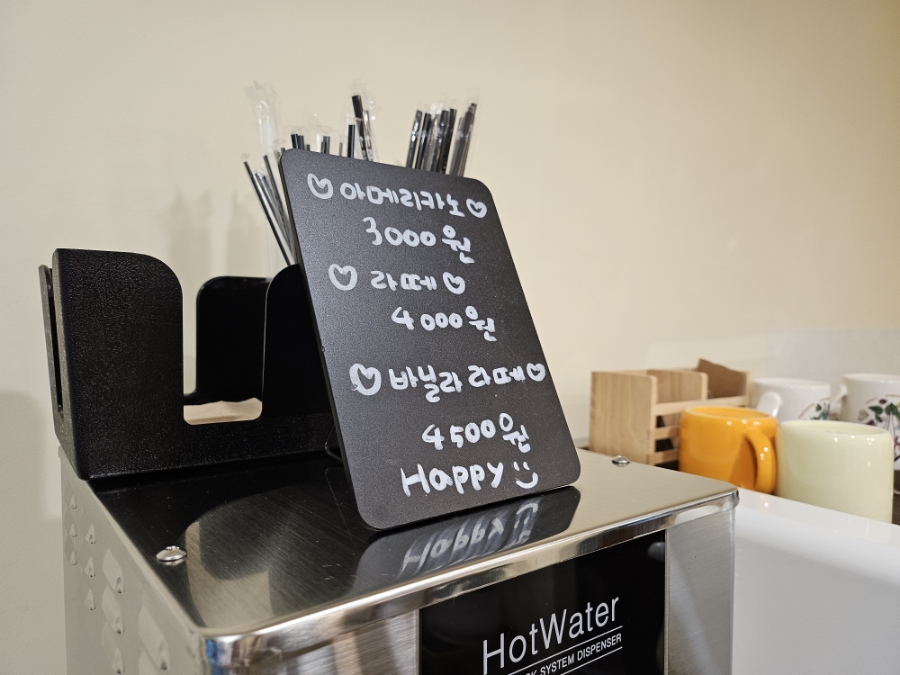 ♡아메리카노♡
3000원
♡ 라떼♡
4000원
♡바닐라 라떼♡
4500원
Happy :)
HotWater
SYSTEM DISPENSER